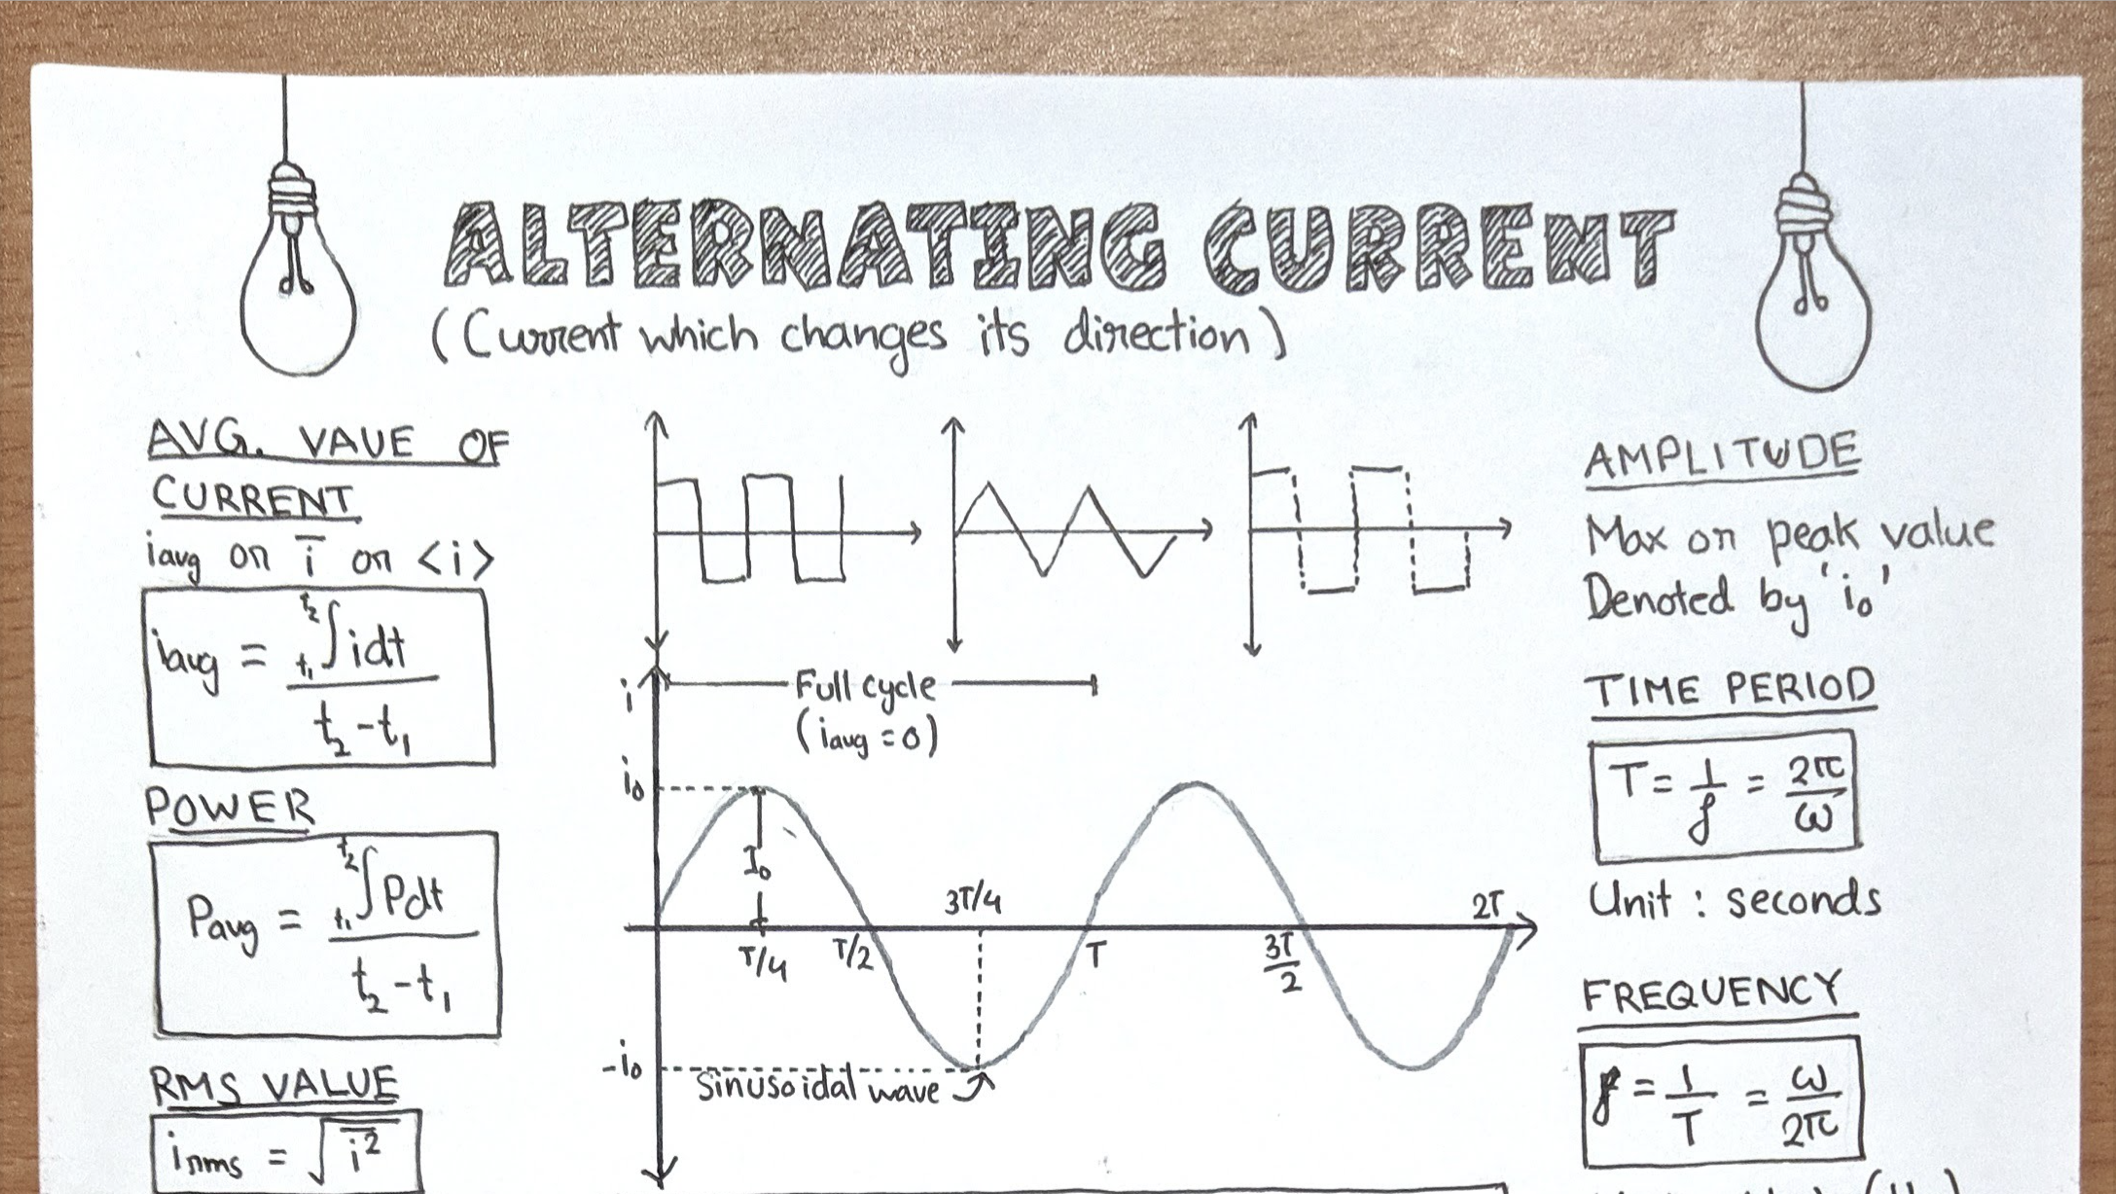 ALTERNATING CURRENT
(Current which changes its direction)
AVG. VAUE OF
CURRENT
iavg or i̅ or <i>
iavg = t₁∫t₂ idt / t₂-t₁
POWER
Pavg = t₁∫t₂ Pdt / t₂-t₁
RMS VALUE
irms = √i̅²
i
Full cycle
(iavg = 0)
i₀
I₀
T/4
T/2
3T/4
T
3T/2
2T
-i₀
Sinusoidal wave
AMPLITUDE
Max or peak value
Denoted by 'i₀'
TIME PERIOD
T = 1/f = 2π/ω
Unit : seconds
FREQUENCY
f = 1/T = ω/2π